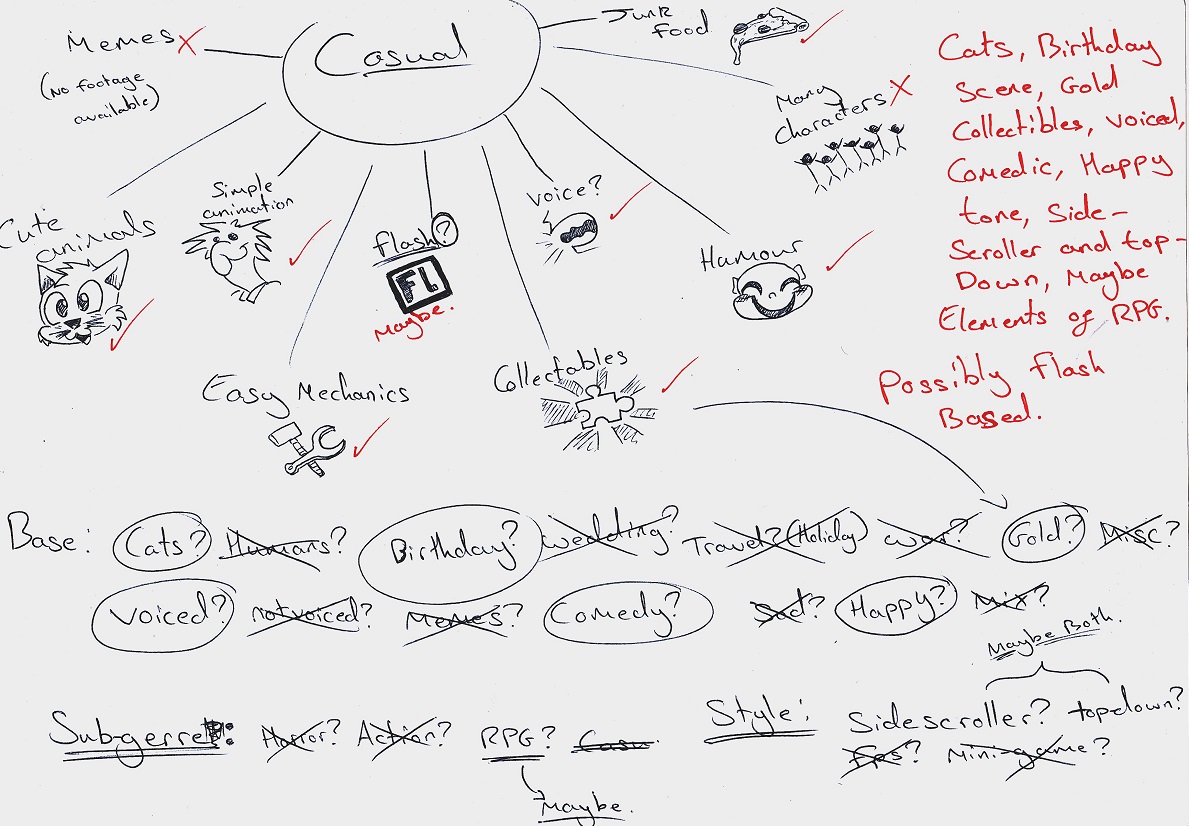 Casual
Memes X
(No footage
available)
Junk
food
Many
characters X
Cute
animals
Simple
animation
Flash?
FL
Maybe.
Voice?
Humour
Easy Mechanics
Collectables
Cats, Birthday
Scene, Gold
Collectibles, voiced,
Comedic, Happy
tone, Side-
Scroller and top-
Down, Maybe
Elements of RPG.
Possibly flash
Based.
Base: Cats? Humans? Birthday? Wedding? Travel? (Holiday) War? Gold? Misc?
Voiced? not voiced? Memes? Comedy? Sad? Happy? Mix?
Maybe Both.
Subgenre: Horror? Action? RPG?
Maybe.
Style: Sidescroller? topdown?
Fps? Mini-game?